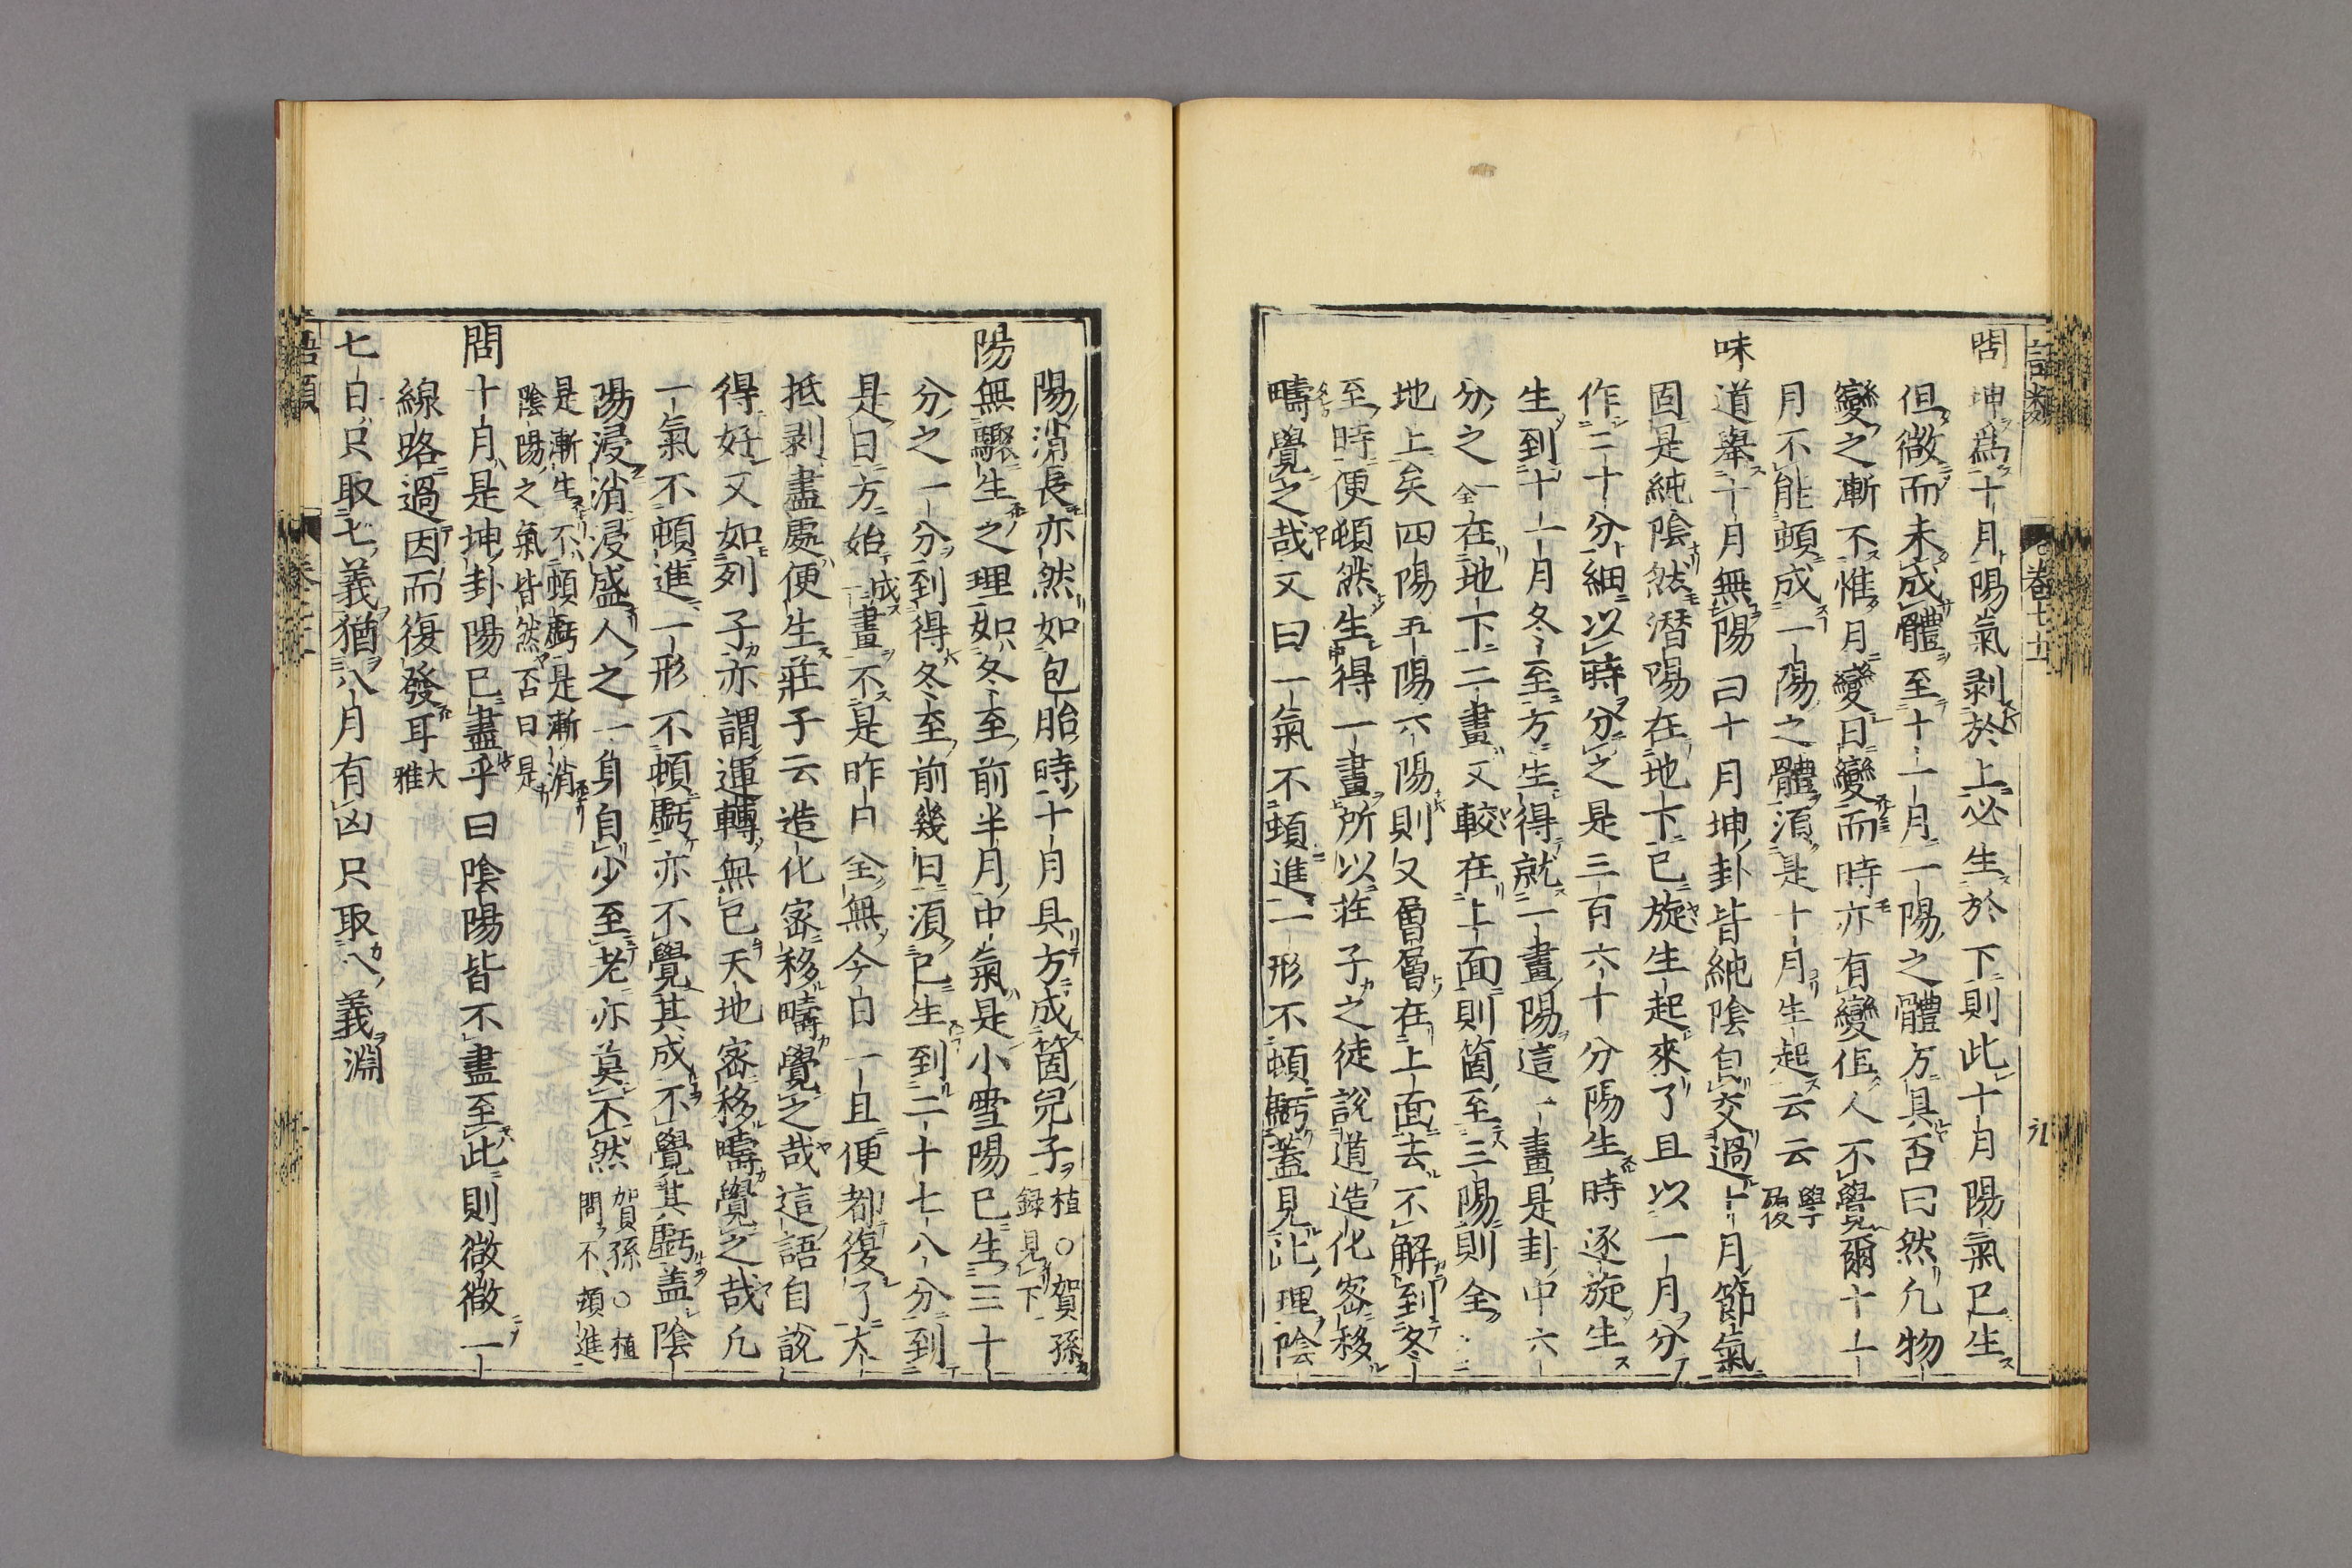 語類
卷七十一
九
問坤爲十月陽氣剥於上必生於下則此十月陽氣已生
但微而未成體至十一月一陽之體方具否曰然凢物
變之漸不惟月變日變而時亦有變但人不覺爾十一
月不能頓成一陽之體湏是十月生起云云學履
味道舉十月無陽曰十月坤卦皆純陰自交過十月節氣
固是純陰然潜陽在地下已旋生起來了且以一月分
作三十分細以時分之是三百六十分陽生時逐旋生
生到十一月冬至方生得就一畫陽這一畫是卦中六
分之一全在地下二畫又較在上面則箇至三陽則全在
地上矣四陽五陽六陽則又層層在上面去不解到冬
至時便頓然生得一畫所以莊子之徒說道造化密移
疇覺之哉又曰一氣不頓進一形不頓虧蓋見此理陰
陽消長亦然如包胎時十月具方成箇兒子植錄見下○賀孫
陽無驟生之理如冬至前半月中氣是小雪陽已生三十
分之一分到得冬至前幾日湏已生到二十七八分到
是日方始成一畫不是昨日全無今日一旦便都復了大
抵剥盡處便生莊子云造化密移疇覺之哉這語自說
得好又如列子亦謂運轉無已天地密移疇覺之哉凢
一氣不頓進一形不頓虧亦不覺其成不覺其虧盖陰
陽浸消浸盛人之一身自少至老亦莫不然賀孫○植問不頓進
是漸生不頓虧是漸消陰陽之氣皆然否曰是
問十月是坤卦陽已盡乎曰陰陽皆不盡至此則微微一
線路過因而復發耳大雅
七日只取七義猶八月有凶只取八義淵
語類